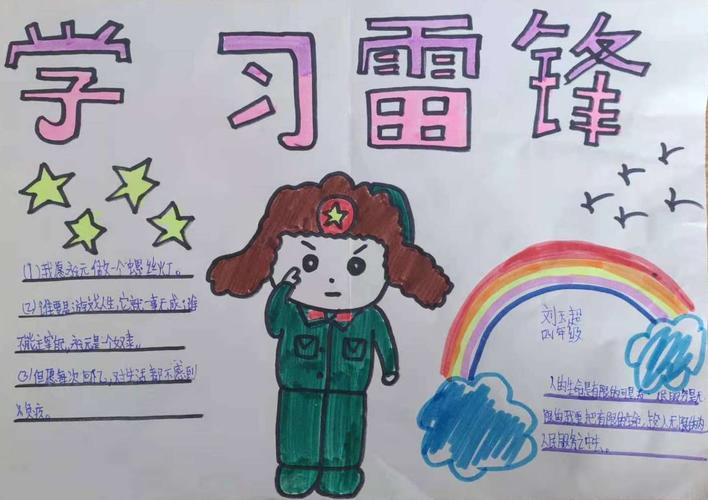 学习雷锋
(1)我愿永元做一个螺丝灯。
(2)谁要是游戏人生,它就一事无成;谁
不能主宰,永元是一个奴隶。
(3)但愿每次回忆,对生活都不感到
负疚。
刘玉超
四年级
人的生命是有限的可是 民服务是无
限的我要把有限的生命,投入无限的为
人民服务之中去。